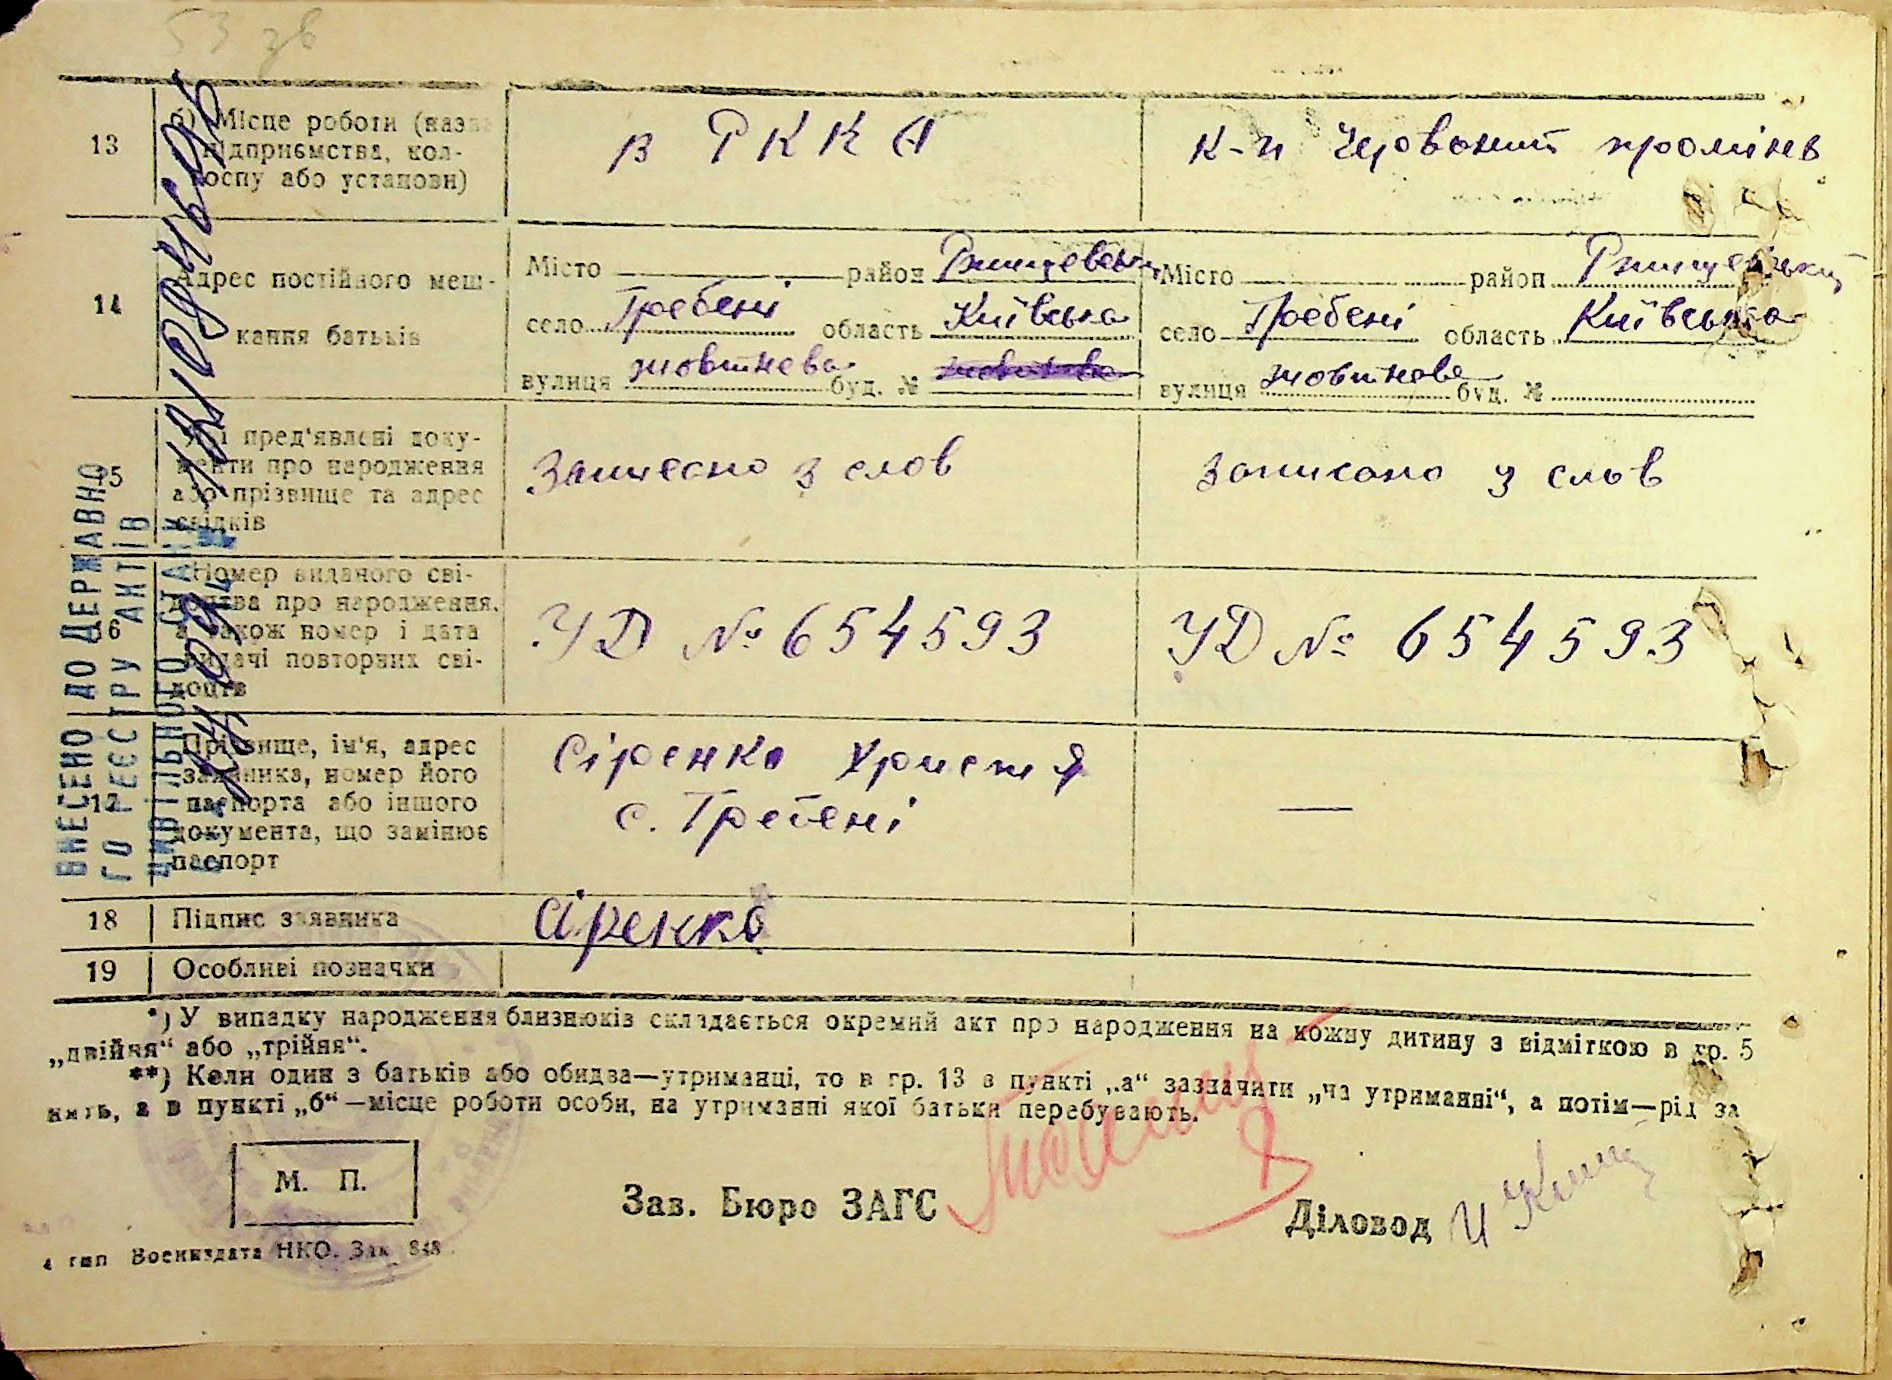 53 зв
13
б) Місце роботи (назва
підприємства, кол-
госпу або установи)
в РККА
к-п Червоний промінь
14
Адрес постійного меш-
кання батьків
Місто район Ржищевськ
село Гребені область Київська
вулиця жовтнева буд. №
Місто район Ржищевський
село Гребені область Київська
вулиця жовтнева буд. №
15
Які пред'явлені доку-
менти про народження
або прізвище та адрес
свідків
Записано з слов
Записано з слов
16
Номер виданого сві-
доцтва про народження,
а також номер і дата
видачі повторних сві-
доцтв
УД № 654593
УД № 654593
17
Прізвище, ім'я, адрес
заявника, номер його
паспорта або іншого
документа, що замінює
паспорт
Сіренко Христя
с. Гребені
—
18
Підпис заявника
Сіренко
19
Особливі позначки
ВНЕСЕНО ДО ДЕРЖАВНО
ГО РЕЄСТРУ АКТІВ
ЦИВІЛЬНОГО СТАНУ
*) У випадку народження близнюків складається окремий акт про народження на кожну дитину з відміткою в гр. 5
„двійня“ або „трійня“.
**) Коли один з батьків або обидва—утриманці, то в гр. 13 в пункті „а“ зазначити „на утриманні“, а потім—рід за
нять, а в пункті „б“—місце роботи особи, на утриманні якої батьки перебувають.
М. П.
Зав. Бюро ЗАГС
Діловод
4 тип Воениздата НКО. Зак 848